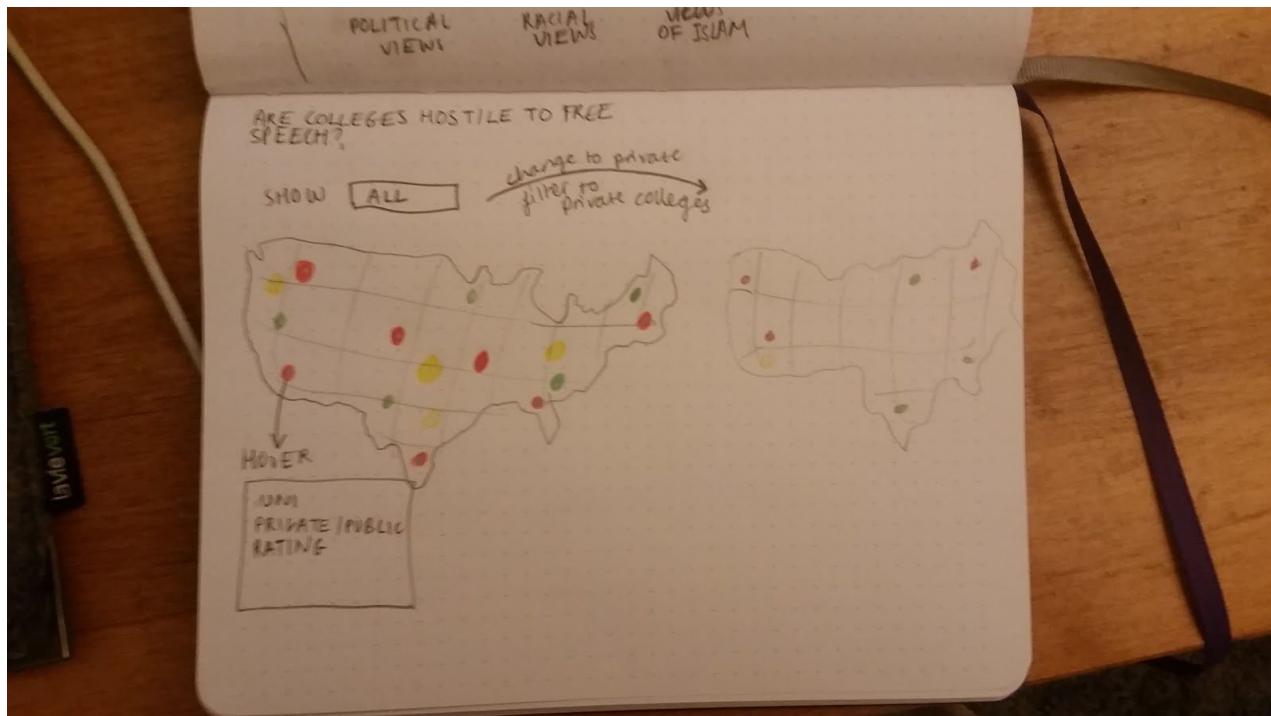 POLITICAL
VIEWS
RACIAL
VIEWS
VIEWS
OF ISLAM
ARE COLLEGES HOSTILE TO FREE
SPEECH?
SHOW ALL
change to private
filter to
private colleges
HOVER
UNI
PRIVATE/PUBLIC
RATING
lavievert